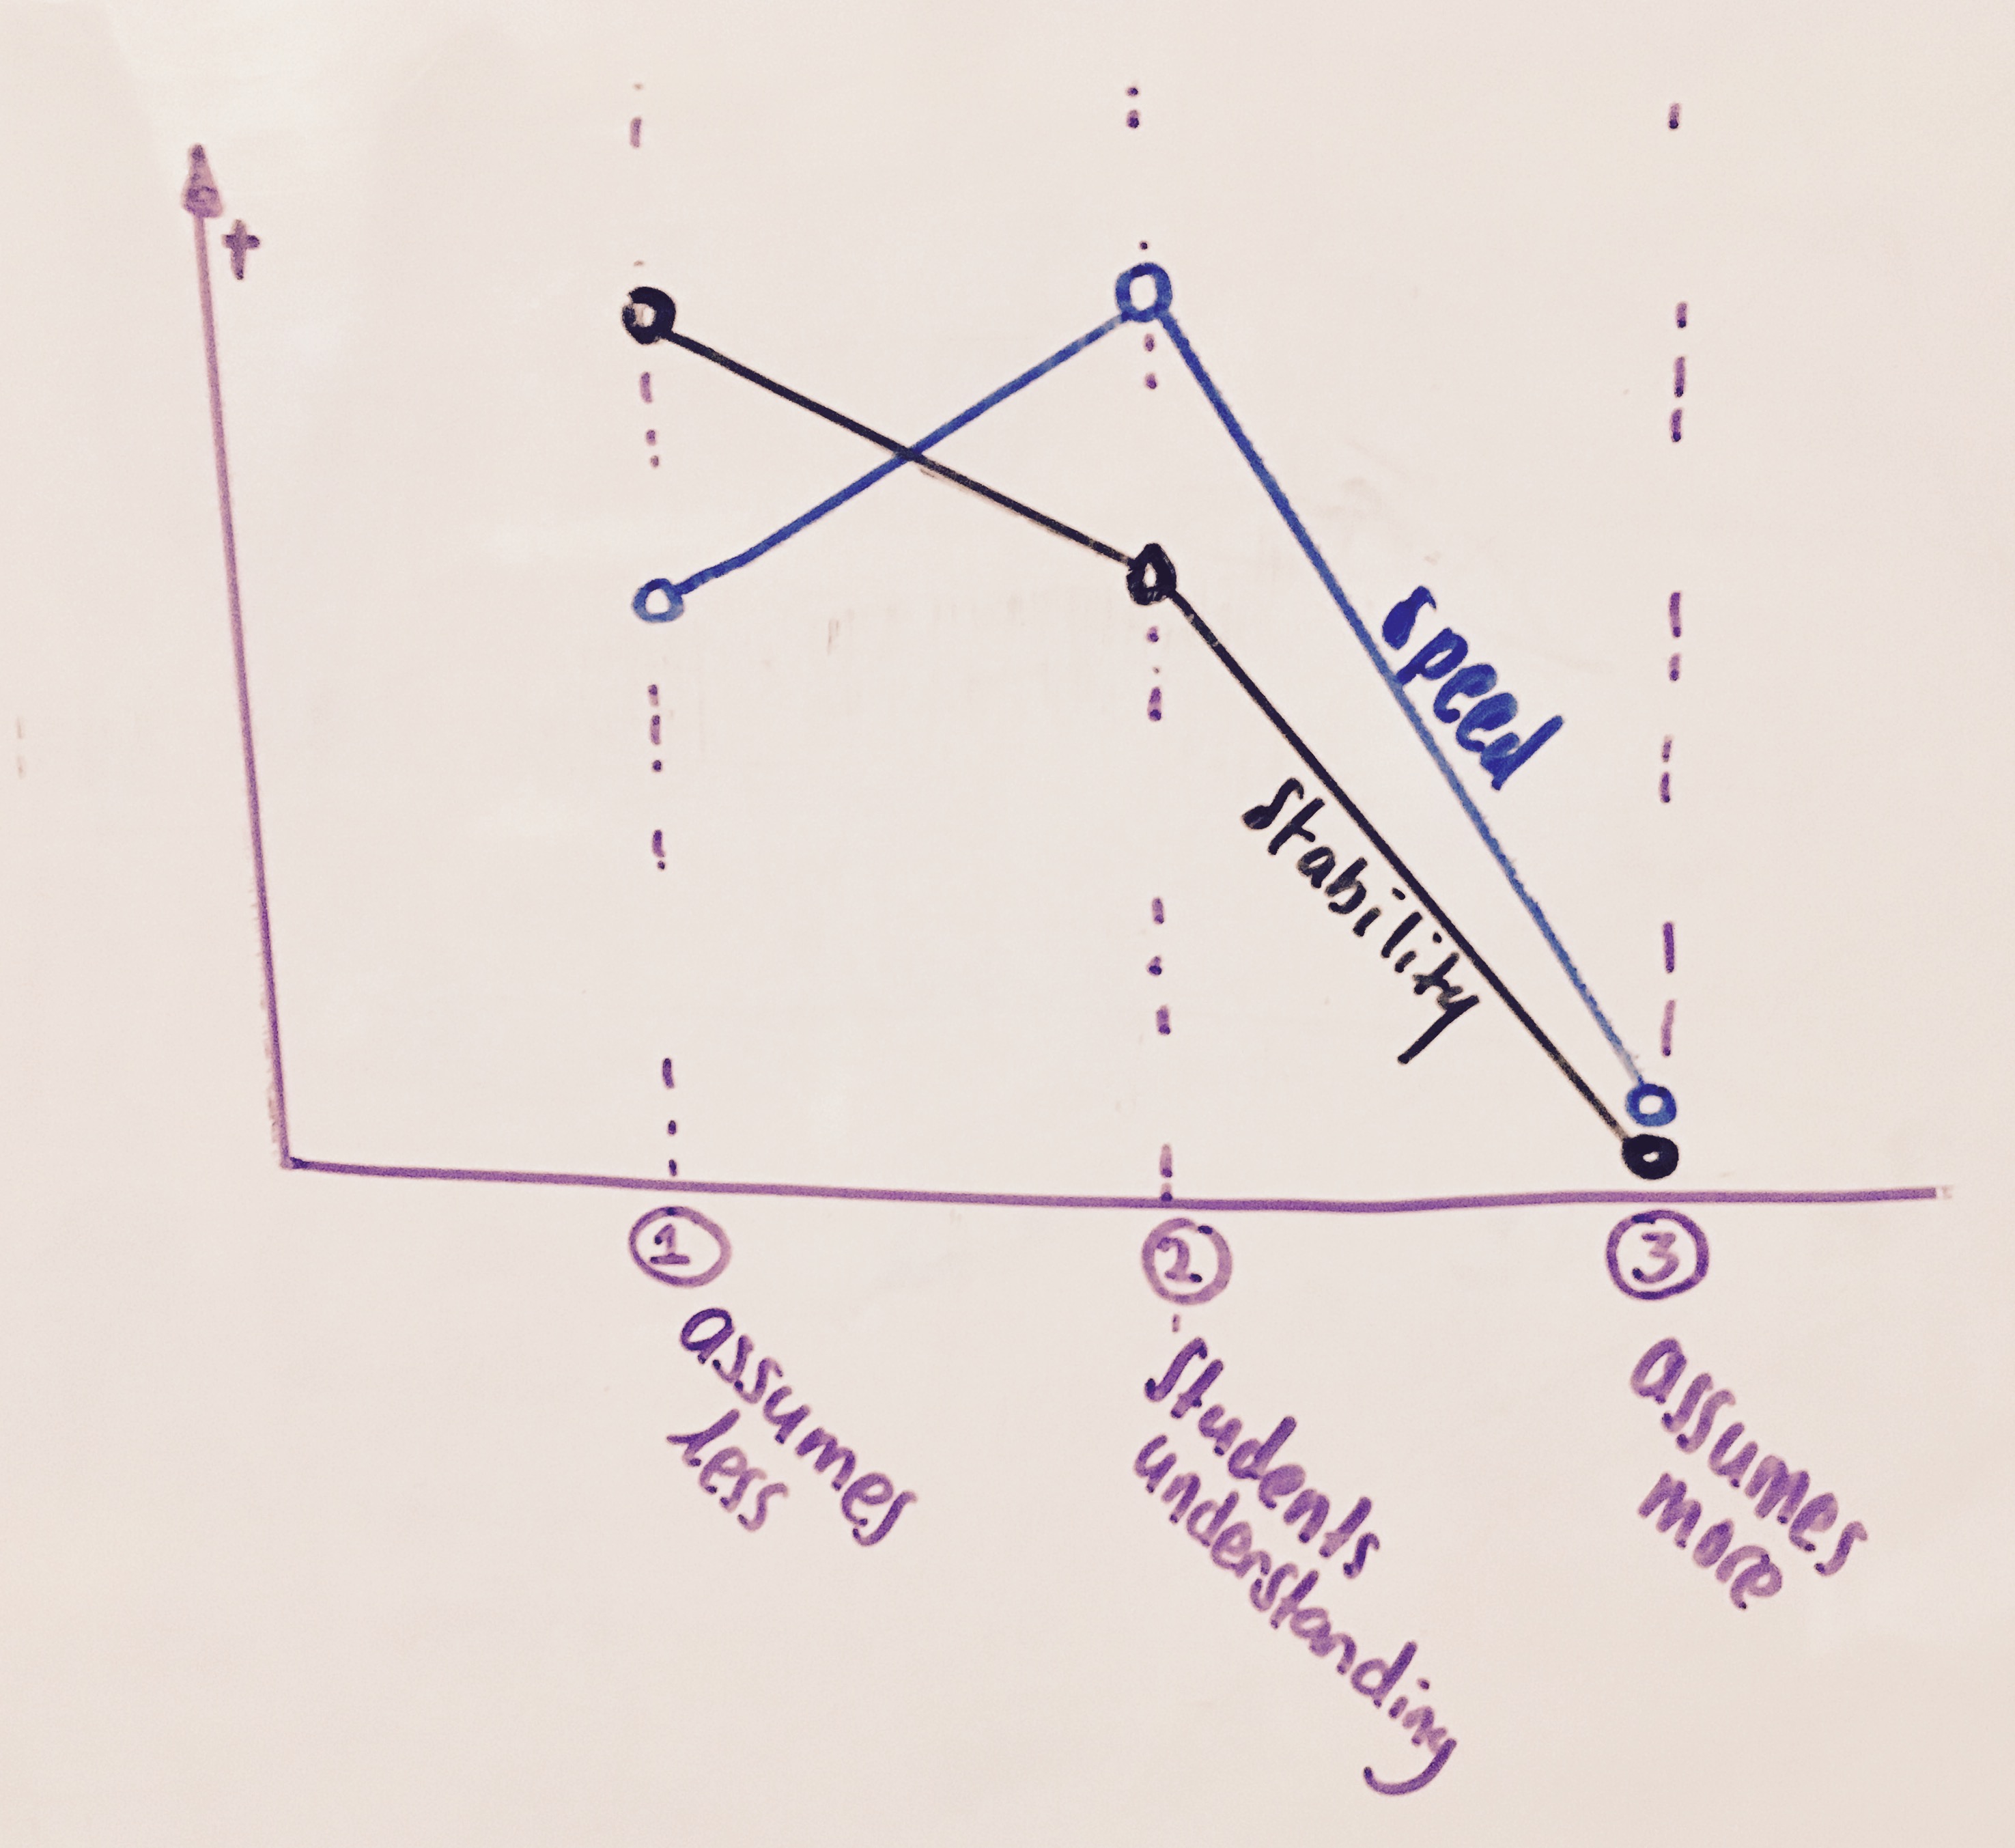 +
speed
stability
1
2
3
assumes
less
students
understanding
assumes
more